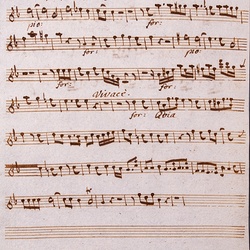 pio: for:
for: pio:
for: for:
Vivace
for: Quia